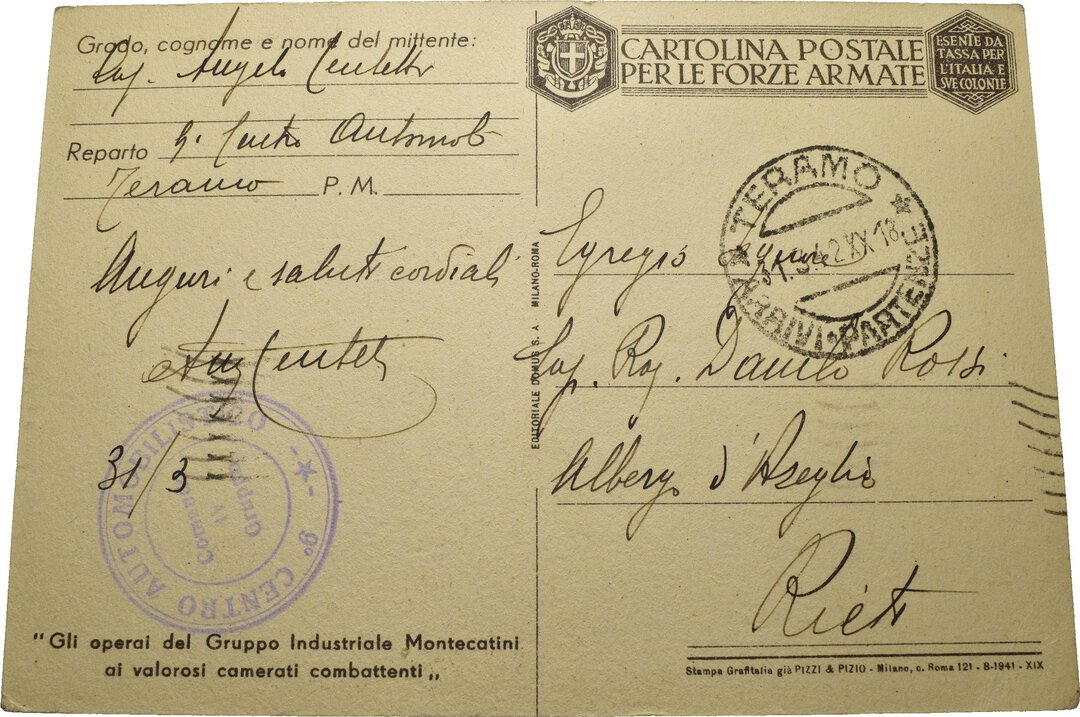 Grado, cognome e nome del mittente:
Cap. Angelo
Reparto 9° Centro Automob
Teramo P. M.
Auguri e saluti cordiali
31/3
9° CENTRO AUTOMOBILISTICO
Comando
IV
Gruppo
"Gli operai del Gruppo Industriale Montecatini
ai valorosi camerati combattenti„
EDITORIALE DOMUS S. A. MILANO-ROMA
CARTOLINA POSTALE
PER LE FORZE ARMATE
ESENTE DA
TASSA PER
L'ITALIA E
SVE COLONIE
TERAMO
31.3.42 XX 18
ARRIVI PARTENZE
Egregio Signore
Cap. Rag. Danilo Rossi
Albergo d'Azeglio
Rieti
Stampa Grafitalia già PIZZI & PIZIO - Milano, c. Roma 121 - 8-1941 - XIX